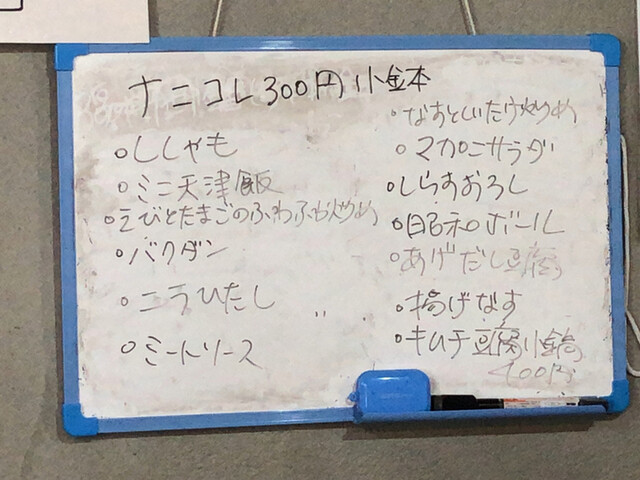 ナニコレ300円小金本
ししゃも
ミニ天津飯
えびとたまごのふわふわ炒め
バクダン
ニラひたし
ミートソース
なすとしいたけ炒め
マカロニサラダ
しらすおろし
昭和ボール
あげだし豆腐
揚げなす
キムチ豆腐小鍋
400円